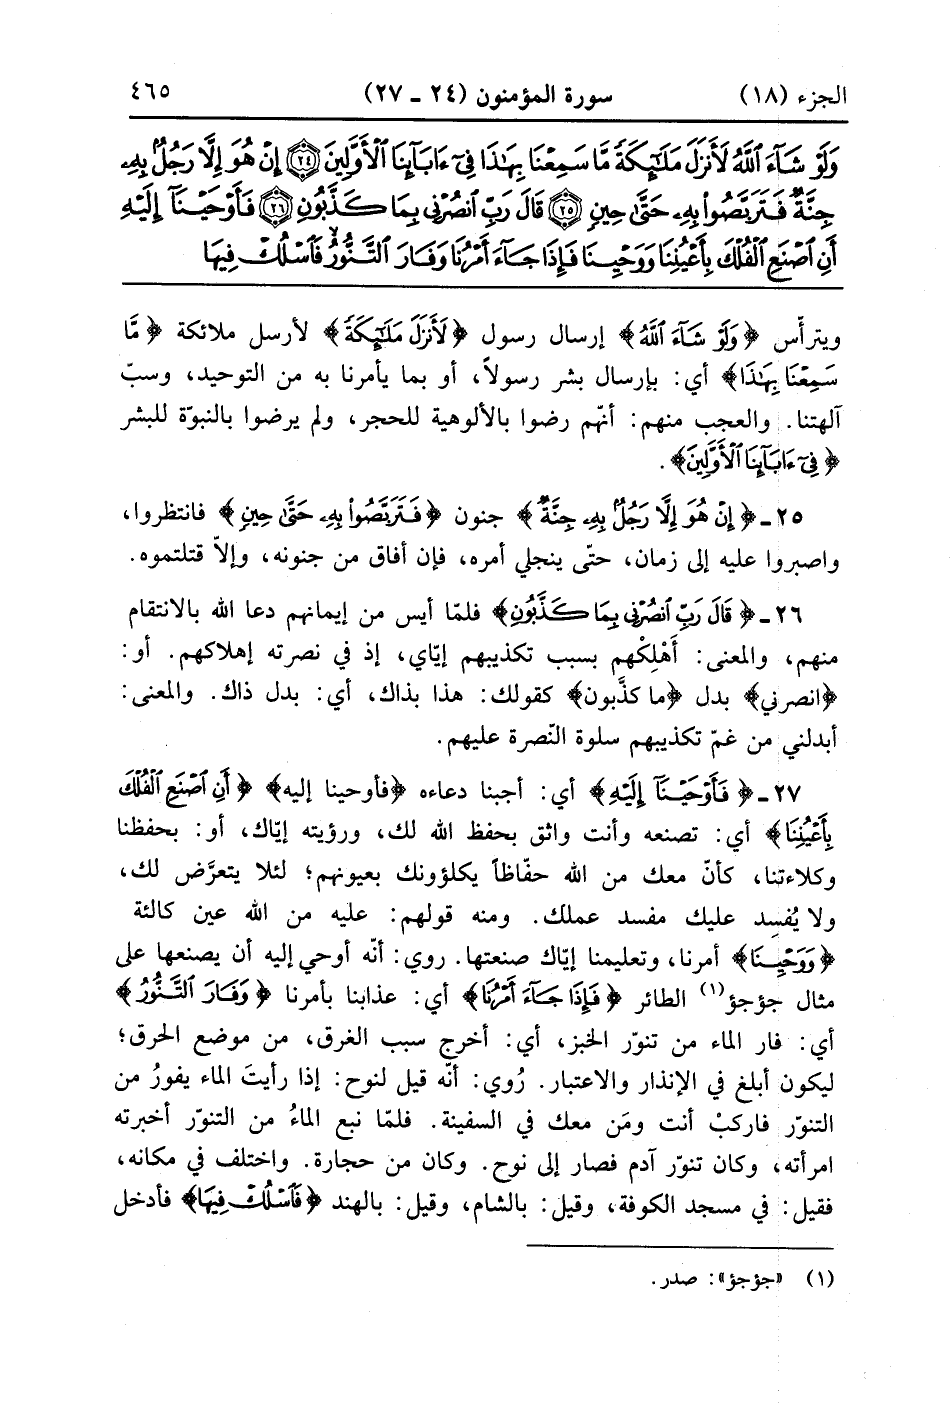 الجزء (١٨) سورة المؤمنون (٢٤ ـ ٢٧) ٤٦٥
وَلَوْ شَآءَ ٱللَّهُ لَأَنزَلَ مَلَـٰٓئِكَةً مَّا سَمِعْنَا بِهَـٰذَا فِىٓ ءَابَآئِنَا ٱلْأَوَّلِينَ ﴿٢٤﴾ إِنْ هُوَ إِلَّا رَجُلٌۢ بِهِۦ
جِنَّةٌ فَتَرَبَّصُوا۟ بِهِۦ حَتَّىٰ حِينٍ ﴿٢٥﴾ قَالَ رَبِّ ٱنصُرْنِى بِمَا كَذَّبُونِ ﴿٢٦﴾ فَأَوْحَيْنَآ إِلَيْهِ
أَنِ ٱصْنَعِ ٱلْفُلْكَ بِأَعْيُنِنَا وَوَحْيِنَا فَإِذَا جَآءَ أَمْرُنَا وَفَارَ ٱلتَّنُّورُ ۙ فَٱسْلُكْ فِيهَا
ويترأّس ﴿وَلَوْ شَآءَ ٱللَّهُ﴾ إرسال رسول ﴿لَأَنزَلَ مَلَـٰٓئِكَةً﴾ لأرسل ملائكة ﴿مَّا
سَمِعْنَا بِهَـٰذَا﴾ أي: بإرسال بشر رسولاً، أو بما يأمرنا به من التوحيد، وسبّ
آلهتنا. والعجب منهم: أنّهم رضوا بالألوهية للحجر، ولم يرضوا بالنبوّة للبشر
﴿فِىٓ ءَابَآئِنَا ٱلْأَوَّلِينَ﴾.
٢٥ ـ ﴿إِنْ هُوَ إِلَّا رَجُلٌۢ بِهِۦ جِنَّةٌ﴾ جنون ﴿فَتَرَبَّصُوا۟ بِهِۦ حَتَّىٰ حِينٍ﴾ فانتظروا،
واصبروا عليه إلى زمان، حتّى ينجلي أمره، فإن أفاق من جنونه، وإلاّ قتلتموه.
٢٦ ـ ﴿قَالَ رَبِّ ٱنصُرْنِى بِمَا كَذَّبُونِ﴾ فلمّا أيس من إيمانهم دعا الله بالانتقام
منهم، والمعنى: أَهْلِكْهم بسبب تكذيبهم إيّاي، إذ في نصرته إهلاكهم. أو:
﴿انصرني﴾ بدل ﴿ما كذَّبون﴾ كقولك: هذا بذاك، أي: بدل ذاك. والمعنى:
أبدلني من غمّ تكذيبهم سلوة النّصرة عليهم.
٢٧ ـ ﴿فَأَوْحَيْنَآ إِلَيْهِ﴾ أي: أجبنا دعاءه ﴿فأوحينا إليه﴾ ﴿أَنِ ٱصْنَعِ ٱلْفُلْكَ
بِأَعْيُنِنَا﴾ أي: تصنعه وأنت واثق بحفظ الله لك، ورؤيته إيّاك، أو: بحفظنا
وكلاءتنا، كأنّ معك من الله حفّاظاً يكلؤونك بعيونهم؛ لئلا يتعرَّض لك،
ولا يُفسِد عليك مفسد عملك. ومنه قولهم: عليه من الله عين كالئة
﴿وَوَحْيِنَا﴾ أمرنا، وتعليمنا إيّاك صنعتها. روي: أنّه أوحي إليه أن يصنعها على
مثال جؤجؤ(١) الطائر ﴿فَإِذَا جَآءَ أَمْرُنَا﴾ أي: عذابنا بأمرنا ﴿وَفَارَ ٱلتَّنُّورُ﴾
أي: فار الماء من تنوّر الخبز، أي: أخرج سبب الغرق، من موضع الحرق؛
ليكون أبلغ في الإنذار والاعتبار. رُوي: أنّه قيل لنوح: إذا رأيتَ الماء يفورُ من
التنوّر فاركبْ أنت ومَن معك في السفينة. فلمّا نبع الماءُ من التنوّر أخبرته
امرأته، وكان تنوّر آدم فصار إلى نوح. وكان من حجارة. واختلف في مكانه،
فقيل: في مسجد الكوفة، وقيل: بالشام، وقيل: بالهند ﴿فَٱسْلُكْ فِيهَا﴾ فأدخل
(١) «جؤجؤ»: صدر.